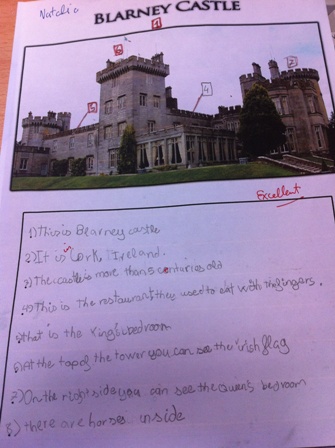 Natalia
BLARNEY CASTLE
1
6
5
4
7
Excellent
1) This is Blarney castle
2) It is in Cork, Ireland.
3) The castle is more than 5 centuries old
4) This is the restaurant they used to eat with fingers.
5) that is the King's bedroom
6) At the top of the tower you can see the irish flag
7) On the right side you can see the Queen's bedroom
8) there are horses inside